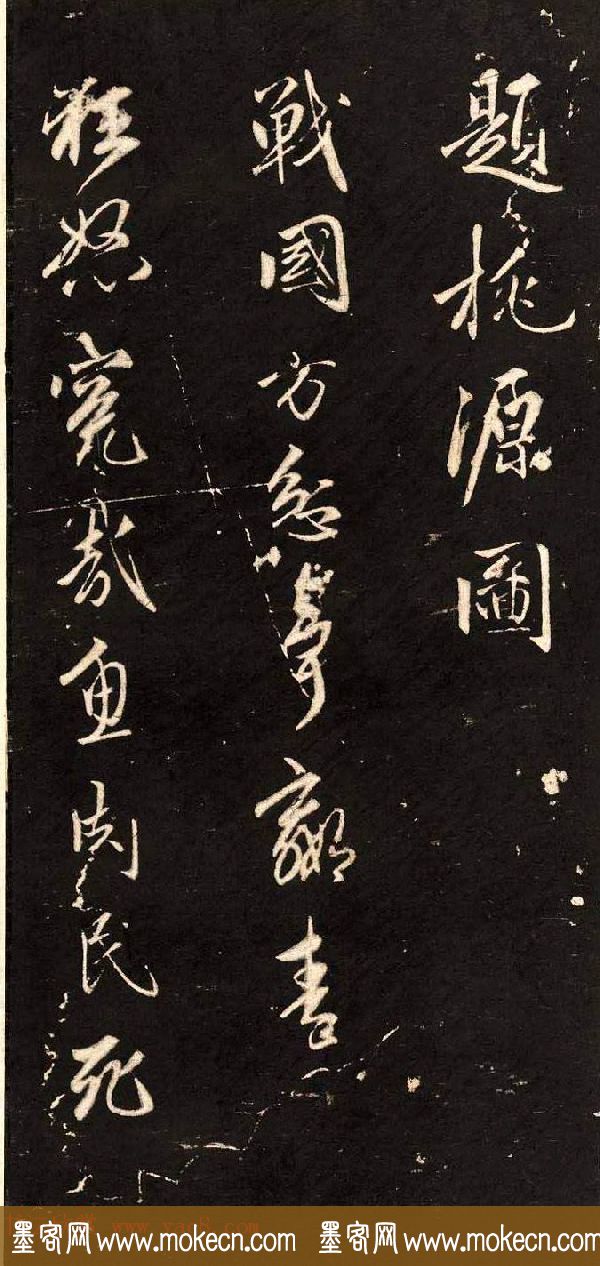 題桃源圖
戰國方忿爭嬴秦
怒冤哉魚肉民死
墨客网 www.mokecn.com 墨客网 www.mokecn.com